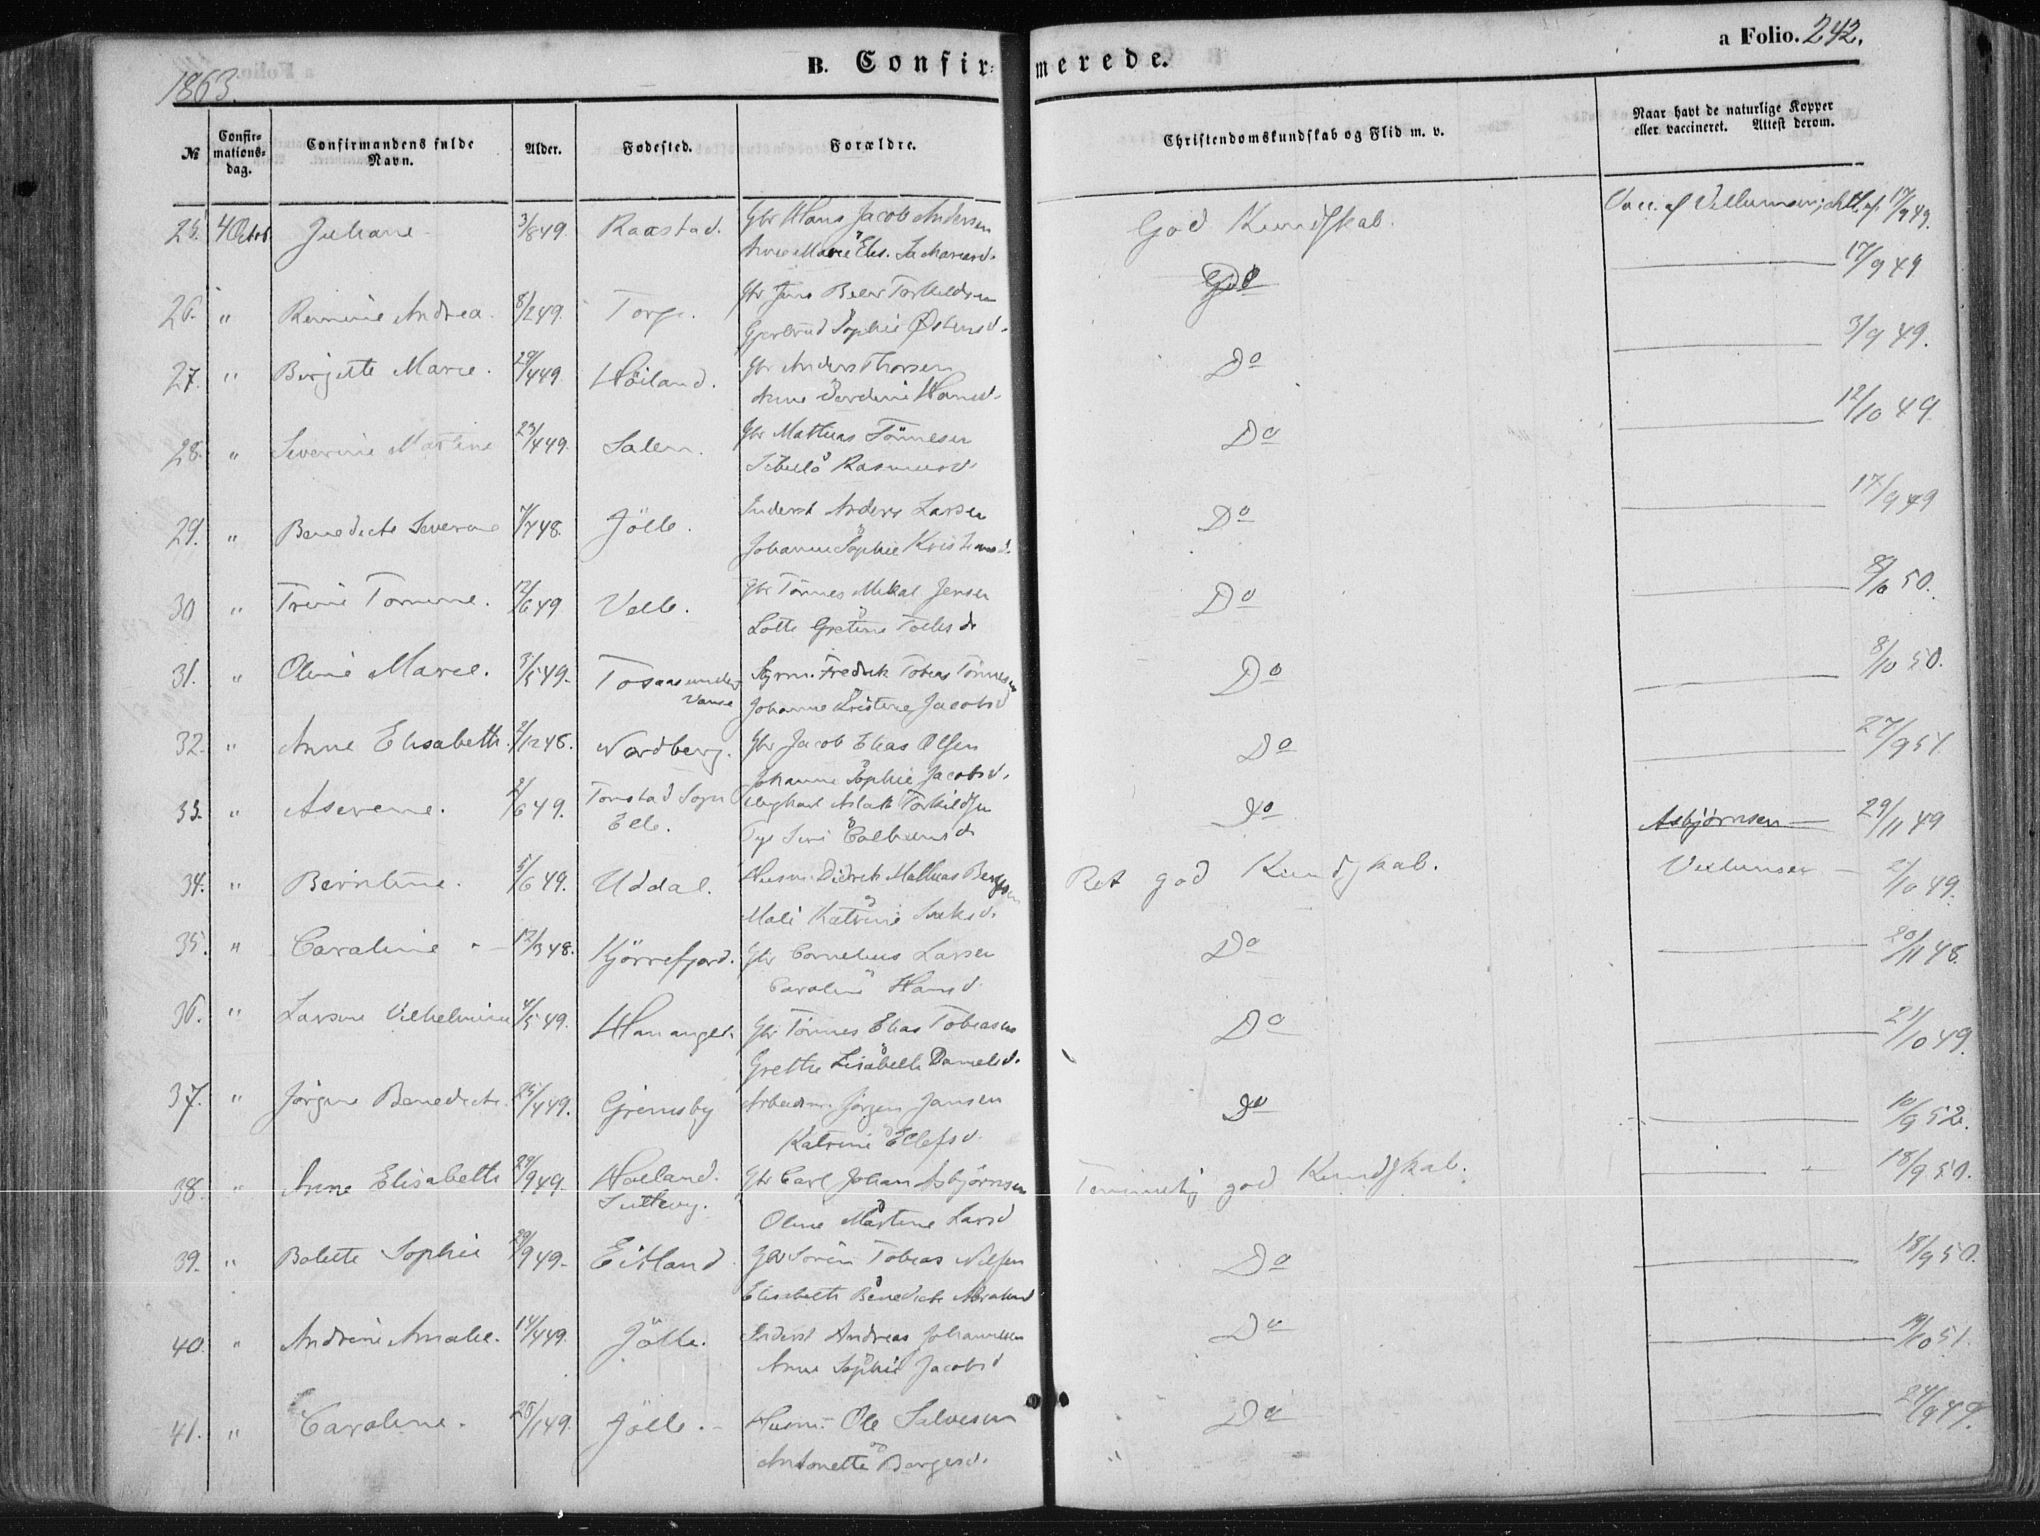 1863.
B. Confirmerede.
a Folio. 242.
№ Confirmations-dag. Confirmandens fulde Navn. Alder. Fødested. Forældre. Christendomskundskab og Flid m. v. Naar havt de naturlige Kopper eller vaccineret. Attest derom.
25. 4 Octob. Juliane 3/8 49. Raastad. Gbr Hans Jacob Andersen God Kundskab. Vacc. af 17/9 49.
Anne Marie Elis.
26. " Andrea. 8/2 49. Torp. Gbr Jens Beer Torkildsen Do 17/9 49
Gjertrud Sophie Østensd.
27. " Birgitte Marie. 29/4 49. Höiland. Gbr Anders Thorsen Do 3/9 49.
Anne Hansd.
28. " Severine Martine 23/4 49. Salen. Gbr Mathias Tönnesen Do 12/10 49.
Sibilla Rasmusd.
29. " Benedicte Severine 7/7 48. Jölle. Inderst Anders Larsen Do 17/9 49
Johanne Sophie Kristensd.
30 " Trine Tomine. 12/6 49. Velle. Gbr Tönnes Mikal Jensen Do 8/10 50.
Lotte Gretine
31. " Oline Marie. 3/5 49. Vanse Styrm. Fredrik Tobias Tönnesen Do 8/10 50.
Johanne Kristine Jacobsd
32. " Anne Elisabeth. 2/12 48. Nordberg. Gbr Jacob Elias Olsen Do 27/9 51.
Johanne Sophie Jacobsd.
33. " Aserene. 2/6 49. Tonstad Sogn Ungkarl Aslak Torkildsen Do Asbjørnsen — 29/11 49
Elle. Siri
34. " Berntine. 5/6 49. Uddal. Husm. Didrik Mathias Bentsen Ret god Kundskab. Villumsen — 2/10 49.
Mali Katrine
35. " Caroline 12/3 48. Kjörrefjord. Gbr Cornelius Larsen Do 20/11 48.
Caroline Hansd.
36. " Larsine Vilhelmine 4/5 49. Hananger. Gbr Tönnes Elias Tobiasen Do 21/10 49.
Grethe Lisabeth Danielsd.
37. " Jörgine Benedicte. 25/4 49. Grimsby Arbeidsm. Jörgen Jansen Do 10/9 52.
Katrine Ellefsd.
38. " Anne Elisabeth 29/9 49. Höiland. Gbr Carl Johan Asbjörnsen Temmelig god Kundskab. 18/9 50.
Oline Martine Larsd
39. " Bolette Sophie 29/9 49. Eitland. Gbr Sören Tobias Nilsen Do 18/9 50.
Elisabeth Benedicte Abrahamsd
40. " Andrine Amalie. 14/4 49. Jölle. Inderst Andreas Johannesen Do 19/10 51.
Anne Sophie Jacobsd
41. " Caroline. 28/1 49. Jölle. Husm. Ole Salvesen Do 24/9 49.
Antonette Borgesd.